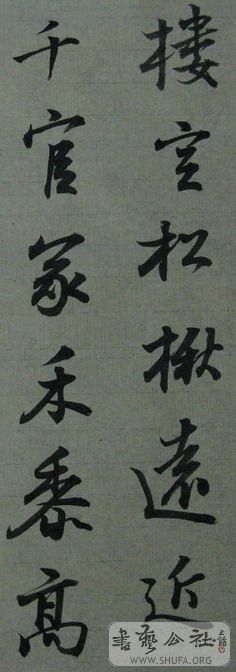 樓空松楸遠近
千官冢禾黍高
書藝公社
WWW.SHUFA.ORG